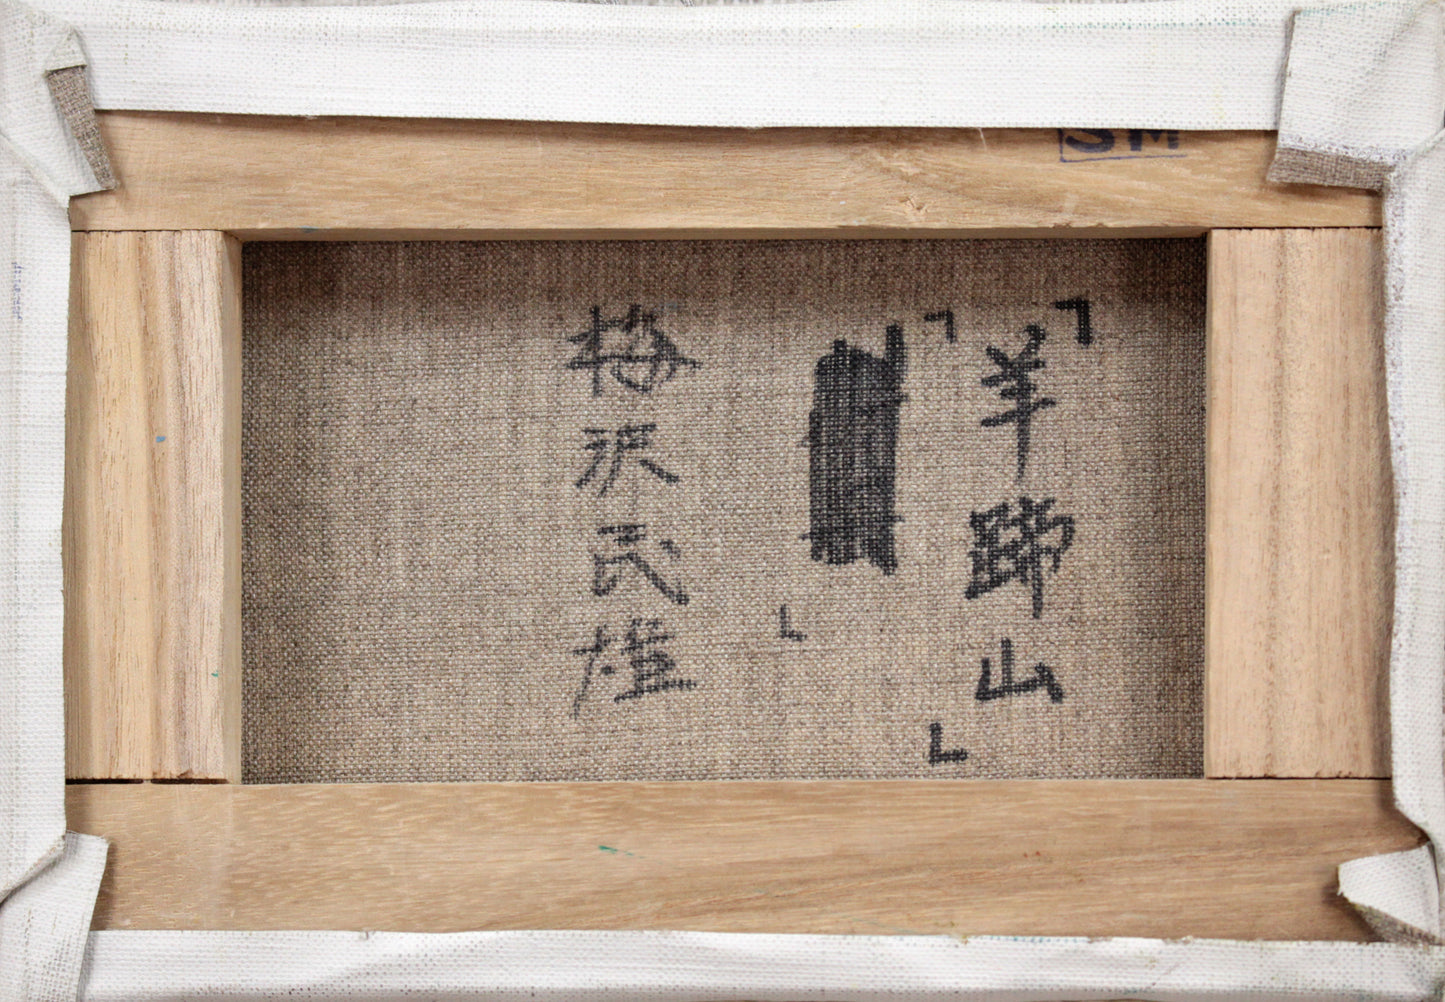 SM
「羊蹄山」
「
」
梅沢民雄